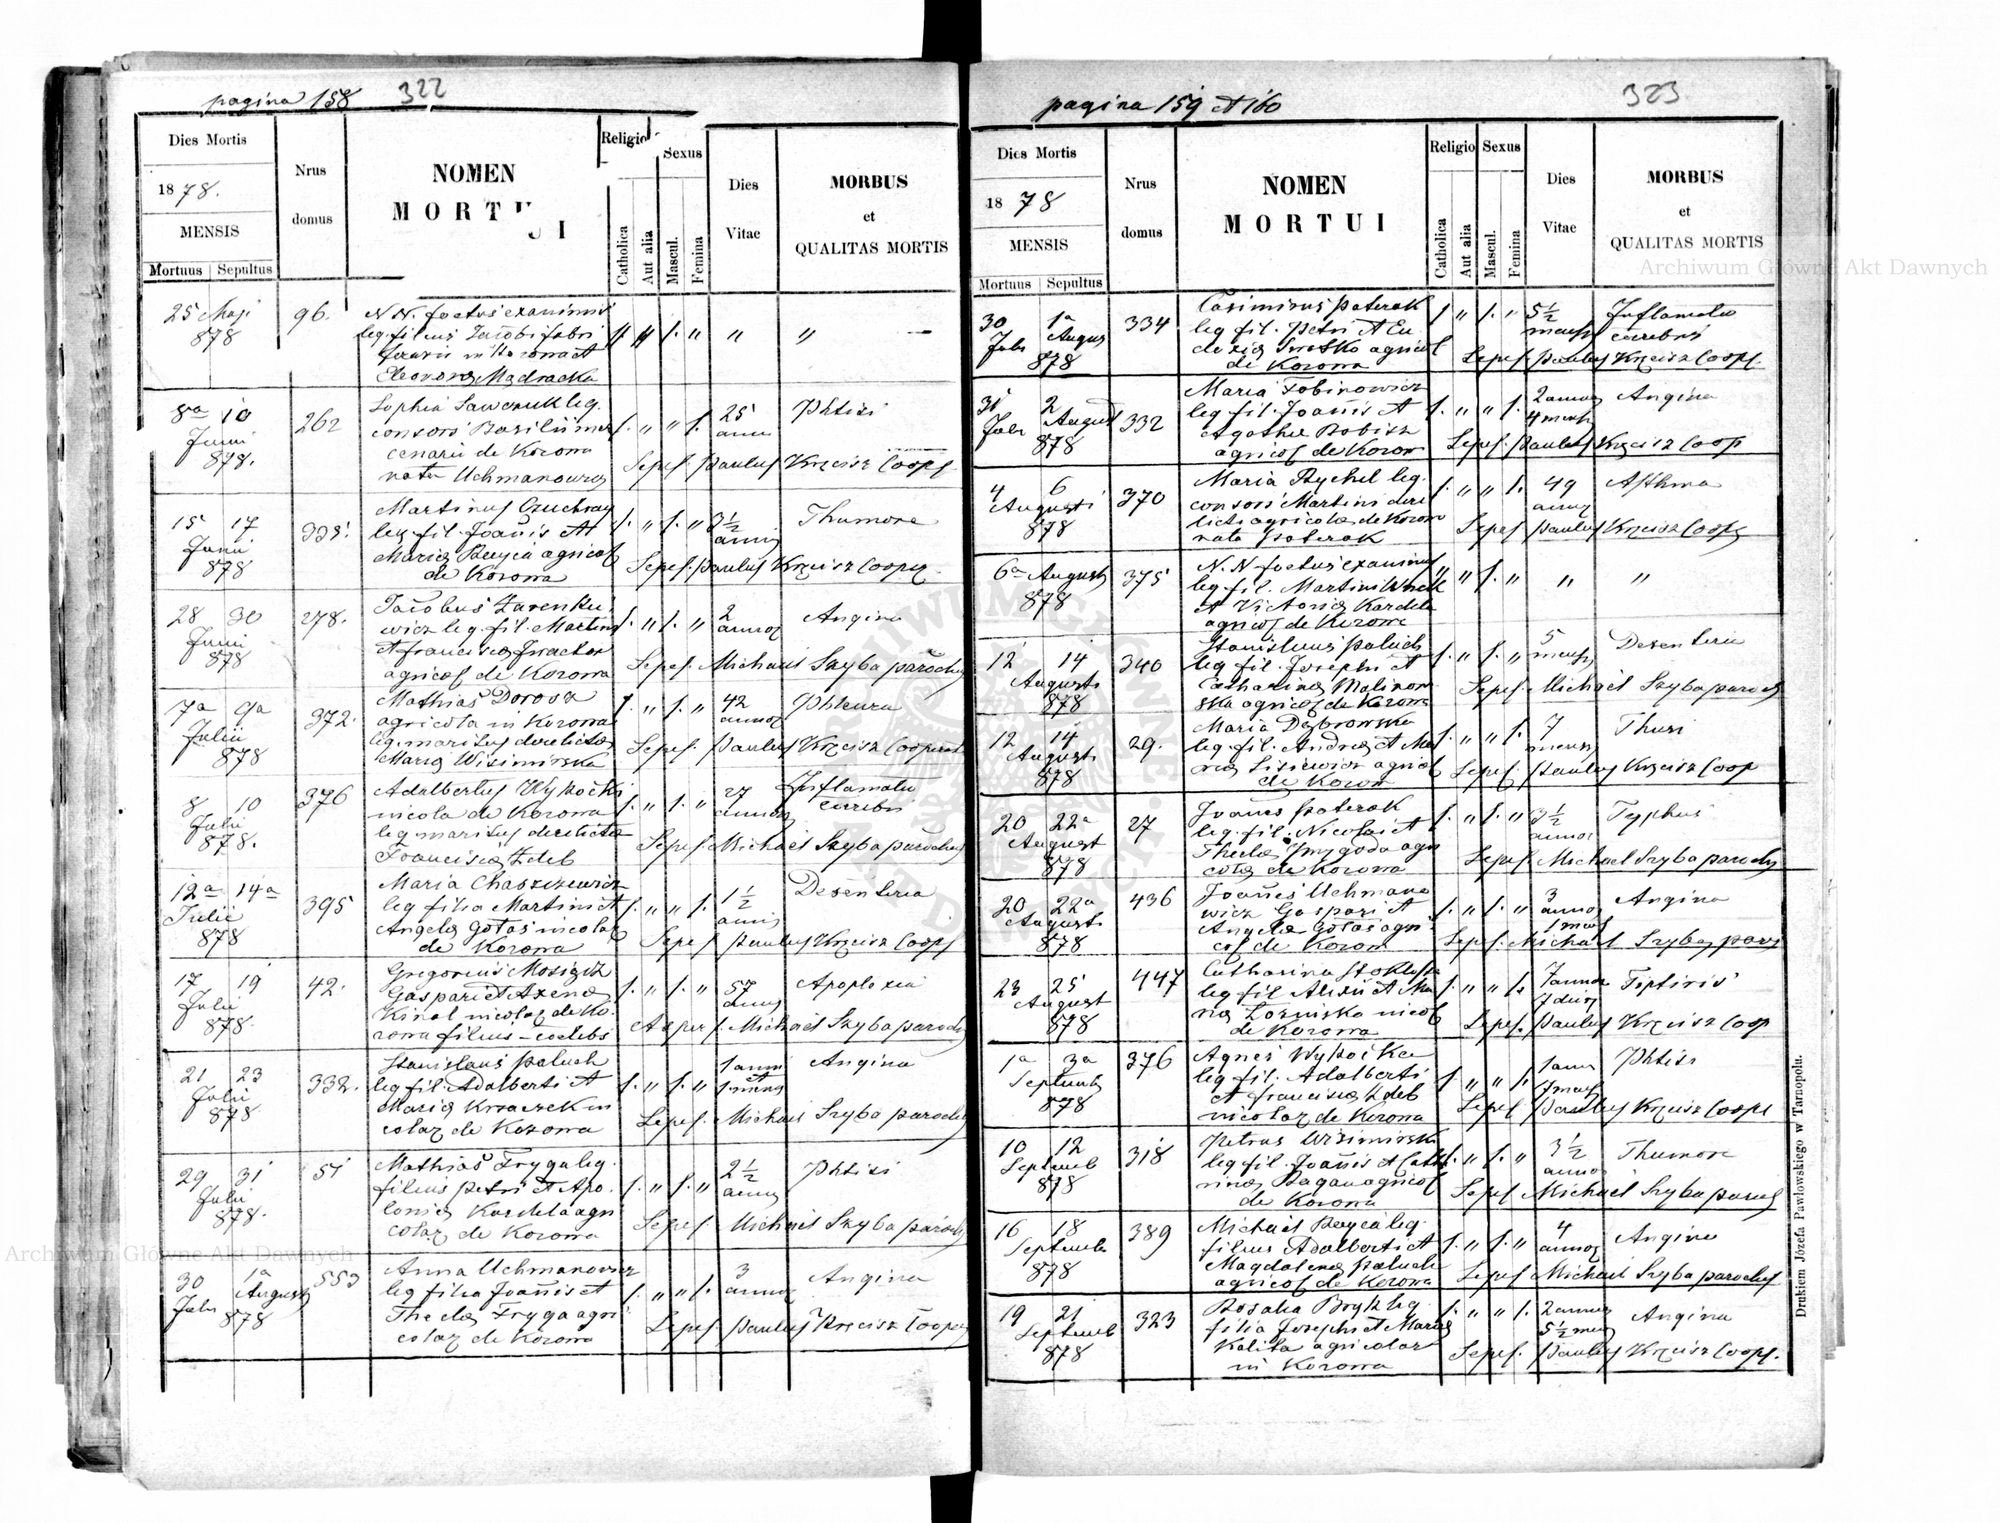 pagina 158 322
Dies Mortis
1878.
MENSIS
Mortuus Sepultus
Nrus
domus
NOMEN
MORTUI
Religio
Catholica
Aut alia
Sexus
Mascul.
Femina
Dies
Vitae
MORBUS
et
QUALITAS MORTIS
25 Maji
878
96.
N. N. foetus exanimis
leg. filius Jacobi fabri
in Kozowa et
Eleonora Mądracka
8a 10
Junii
878.
262
Sophia Sawczuk leg.
consors Basilii mer
cenarii de Kozowa
nata Uchmanowicz
25
anni
Phtisi
Sepel. Paulus Kręcisz Coops
15 17
Junii
878
335.
Martinus Czuchraj
leg. fil. Joannis et
Maria Bucycá agricol
de Kozowa
3½
annis
Thumore
Sepel. Paulus Kręcisz Coops
28 30
Junii
878
278.
Jacobus Zarenkie
wicz leg. fil. Martini
et Francisca
agricol de Kozowa
2
annor
Angina
Sepel. Michael Szyba parochus
7a 9a
Julii
878
372.
Mathias Dorosz
agricola in Kozowa
leg. maritus derelicta
Maria Wisimirska
42
annor
Phleura
Sepel. Paulus Kręcisz Cooperat
8 10
Julii
878.
376
Adalbertus Wysocki
nicola de Kozowa
leg. maritus derelicta
Francisca Zdeb
27
annor
Inflamatio
cerebri
Sepel. Michael Szyba parochus
12a 14a
Julii
878
395
Maria Chaszczewicz
leg. filia Martini et
Angela Gotas nicolar
de Kozowa
1½
annis
Desenteria
Sepel. Paulus Kręcisz Coops
17 19
Julii
878.
42.
Gregorius Mosiądz
Gaspari et Axena
Kinal nicolar de Ko.
zowa filius - coelebs
57
annis
Apoplexia
Asper. Michael Szyba paroch
21 23
Julii
878
332.
Stanislaus Paluch
leg. fil. Adalberti et
Maria Krzaczek in
colar de Kozowa
1 anni
et
1 mens
Angina
Sepel. Michael Szyba parochus
29 31
Julii
878.
51
Mathias Fryga leg.
filius Petri et Apo.
lonia Kardela agri
colar de Kozowa
2½
annis
Phtisi
Sepel. Michael Szyba paroch
30 1a
Julii Augusti
878
553
Anna Uchmanowicz
leg. filia Joannis et
Thecla Fryga agri
colar de Kozowa
3
annor
Angina
Sepel. Paulus Kręcisz Coops
pagina 159 et 160 323
Dies Mortis
1878
MENSIS
Mortuus Sepultus
Nrus
domus
NOMEN
MORTUI
Religio
Catholica
Aut alia
Sexus
Mascul.
Femina
Dies
Vitae
MORBUS
et
QUALITAS MORTIS
30 1a
Juli August
878
334
Casimirus Paterak
leg. fil. Petri et Eu
doxia agricol
de Kozowa
5½
mensis
Inflamatio
cerebri
Sepel. Paulus Kręcisz Coops.
31 2
Juli August
878
332
Maria Tobinowicz
leg. fil. Joannis et
Agatha Bobisz
agricol de Kozow
2 annor
4 mens
Angina
Sepel. Paulus Kręcisz Coop
4 6
Augusti
878
370
Maria Rychel leg.
consors Martini dere
licti agricola de Kozow
nata Paterak
49
annor
Asthma
Sepel. Paulus Kręcisz Coops
6a Augusti
878
375
N. N foetus exanimis
leg. fil. Martini
et Victoria Kardela
agricol de Kozowa
12 14
Augusti
878
340
Stanislaus Paluch
leg. fil. Josephi et
Catharina Malinow
ska agricol de Kozowa
5
mensis
Desenteria
Sepel. Michael Szyba paroch
12 14
Augusti
878
29.
Maria Dąbrowska
leg. fil. Andrea et Ma
ria Lisiewicz agricol
de Kozow
7
mensis
Thusi
Sepel. Paulus Kręcisz Coop
20 22a
August
878
27
Joannes Paterak
leg. fil. Nicolai et
Thecla Przygoda agri
cola de Kozowa
3½
annor
Typhus
Sepel. Michael Szyba paroch
20 22a
Augusti
878
436
Joannes Uchmano
wicz Gaspari et
Angela Gotas agri
col de Kozow
3
annor
1 mens
Angina
Sepel. Michael Szyba paro
23 25
August
878
447
Catharina Stoklosa
leg. fil Alexii et Ma
ria nicol
de Kozowa
7 annor
7 dies
Tiptiris
Sepel. Paulus Kręcisz Coop
1a 3a
Septemb
878
376
Agnes Wysocka
leg. fil. Adalberti
et Francisca Zdeb
nicolar de Kozowa
1 anni
7 mens
Phtisi
Sepel Paulus Kręcisz Coops
10 12
Septemb
878
318
Petrus Wisimirsk
leg. fil. Joannis et Catha
rina Bagan agricol
de Kozowa
3½
annor
Thumore
Sepel Michael Szyba paroch
16 18
Septemb
878
389
Michael Bucycá leg.
filius Adalberti et
Magdalena Paluch
agricol de Kozowa
4
annor
Angina
Sepel. Michael Szyba parochus
19 21
Septemb
878
323
Rosalia Bryk leg.
filia Josephi et Maria
Kalita agricolar
in Kozowa
2 annor
5½ mens
Angina
Sepel. Paulus Kręcisz Coops.
Drukiem Józefa Pawłowskiego w Tarnopolu.
Archiwum Główne Akt Dawnych
Archiwum Główne Akt Dawnych
ARCHIWUM GŁÓWNE AKT DAWNYCH